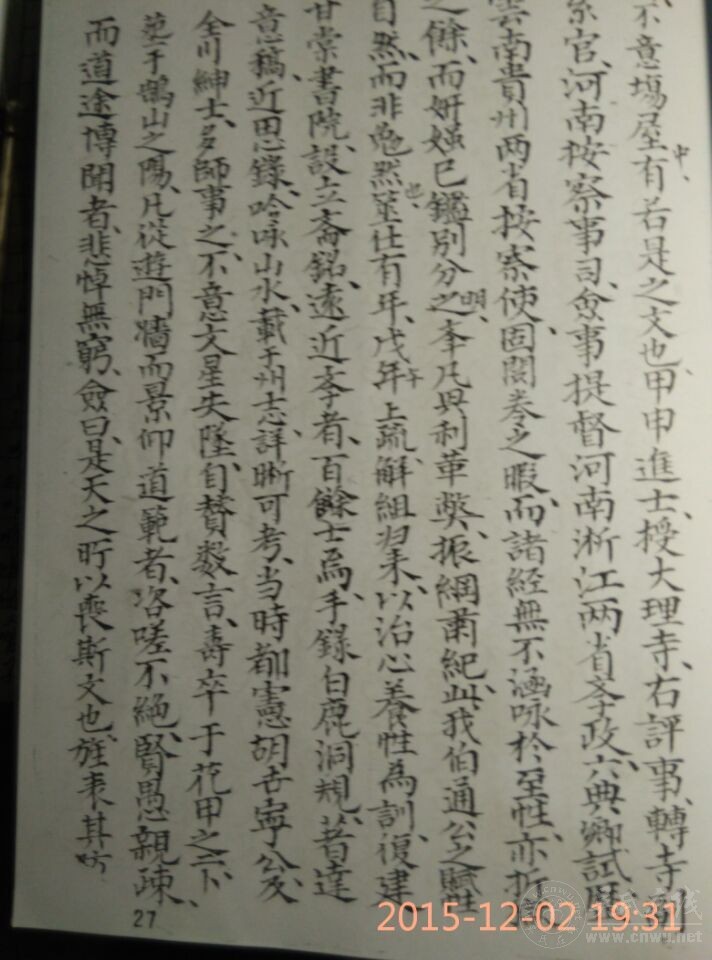 不意塲屋中有若是之文也、甲申進士、授大理寺、右評事、轉寺副
官、河南按察事司、僉事提督河南淅江两省李政、六典鄉試、歷
雲南貴州两省按察使、固閱奏之暇、而諸經無不涵咏於至性、亦折
之餘、而妍媸已鑑別分明之、李凡興利革獘、振綱肅紀、此我伯通公之賦性
自然、而非兔然也、筮仕有年、戊午年上疏、解組归来、以治心養性為訓、復建
甘棠書院、設立齋銘、遠近李者、百餘士焉、手錄白鹿洞規、著達
意稿、近思錄、吟咏山水、載于州志、詳晰可考、当時都憲胡吉寧公及
全川紳士、多師事之、不意文星失墜、自賛数言、壽卒于花甲之二、卜
塟于鵠山之陽、凡從遊門墻而景仰道範者、咨嗟不絶、賢愚親疎、
而道途博聞者、悲悼無窮、僉曰、是天之所以喪斯文也、旌表其坊
27
2015-12-02 19:31
www.cnwu.net